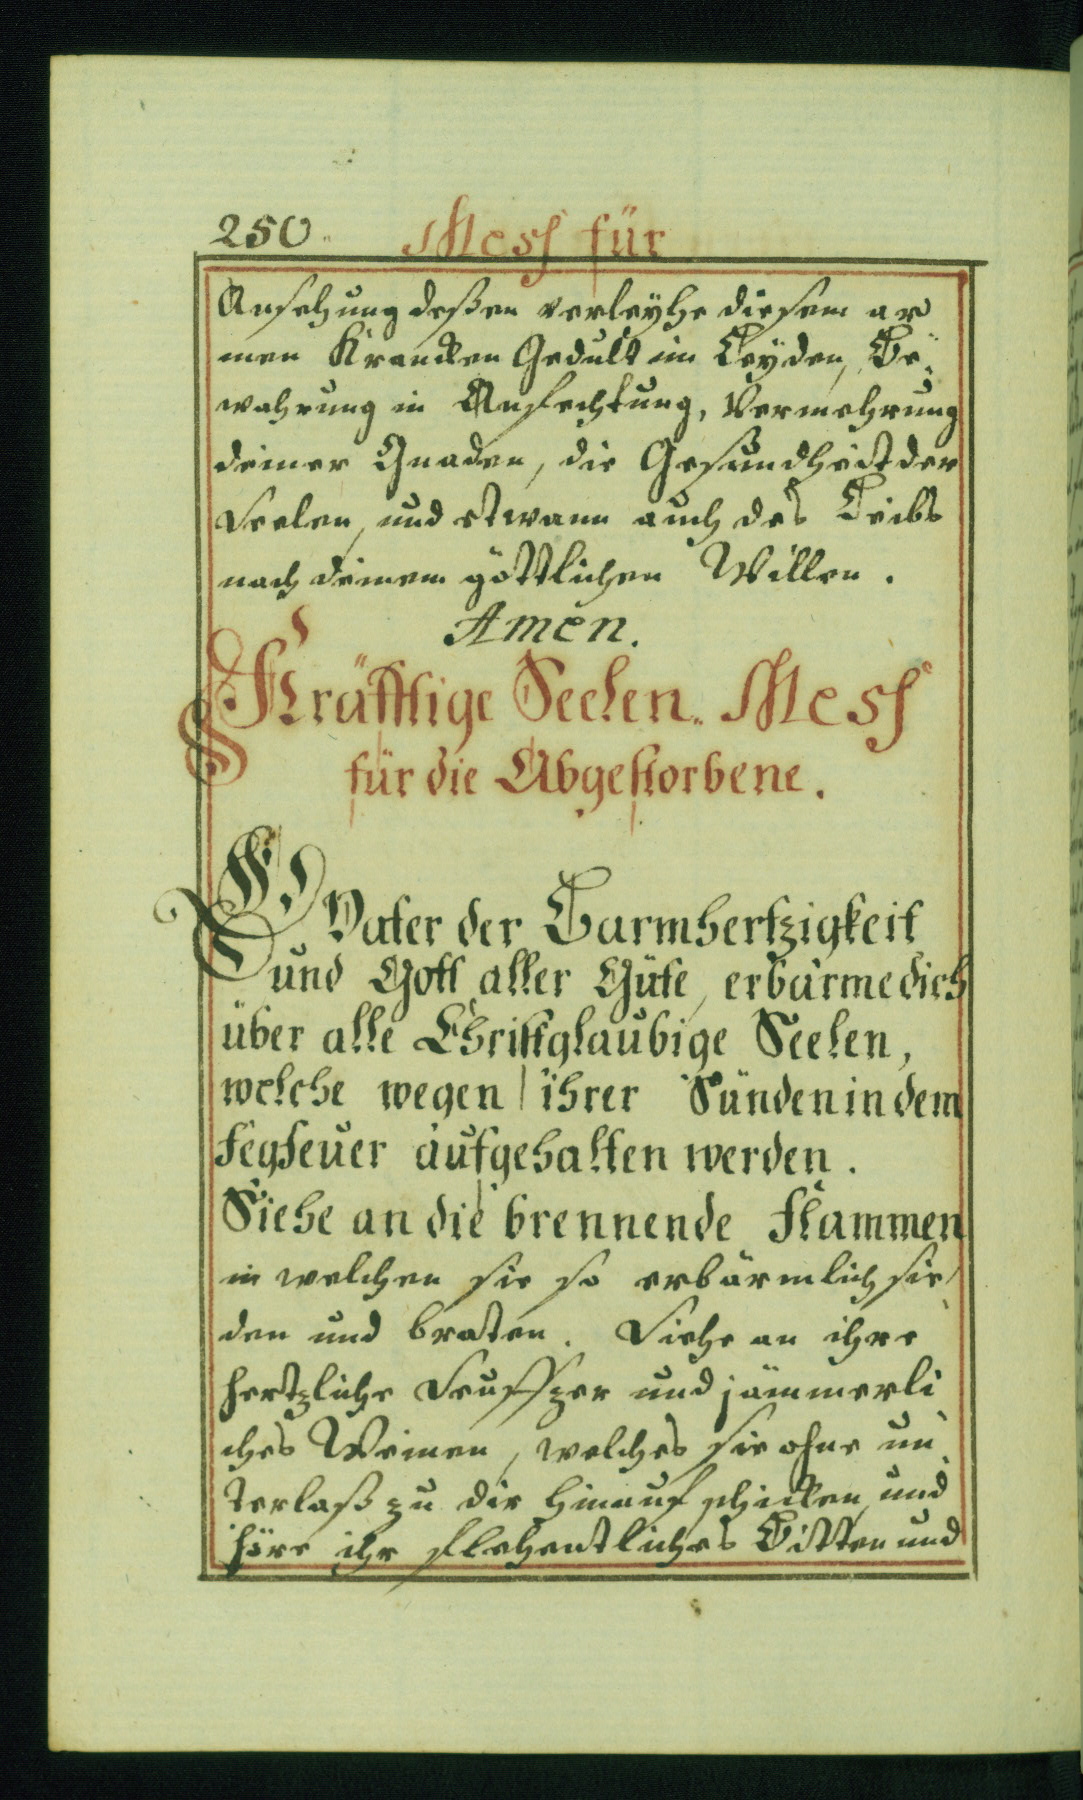 250. Mess für
Ansehung deßen verleyhe diesem ar
men Krancken Gedult im Leyden, Be,
wahrung in Anfechtung, Vermehrung
deiner Gnaden, die Gesundheit der
Seelen, und etwann auch des Leibs
nach deinem göttlichen Willen.
Amen.
Kräfftige Seelen. Mess
für die Abgestorbene.
O Vater der Barmhertzigkeit
und Gott aller Güte, erbarme dich
über alle Christglaubige Seelen,
welche wegen ihrer Sünden in dem
Fegfeuer aufgehalten werden.
Siehe an die brennende Flammen
in welchen sie so erbärmlich sie
den und braten. Siehe an ihre
hertzliche Seuffzer und jämmerli
ches Weinen, welches sie ohne un
terlaß zu dir hinauf schicken, und
höre ihr flehentliches Bitten und